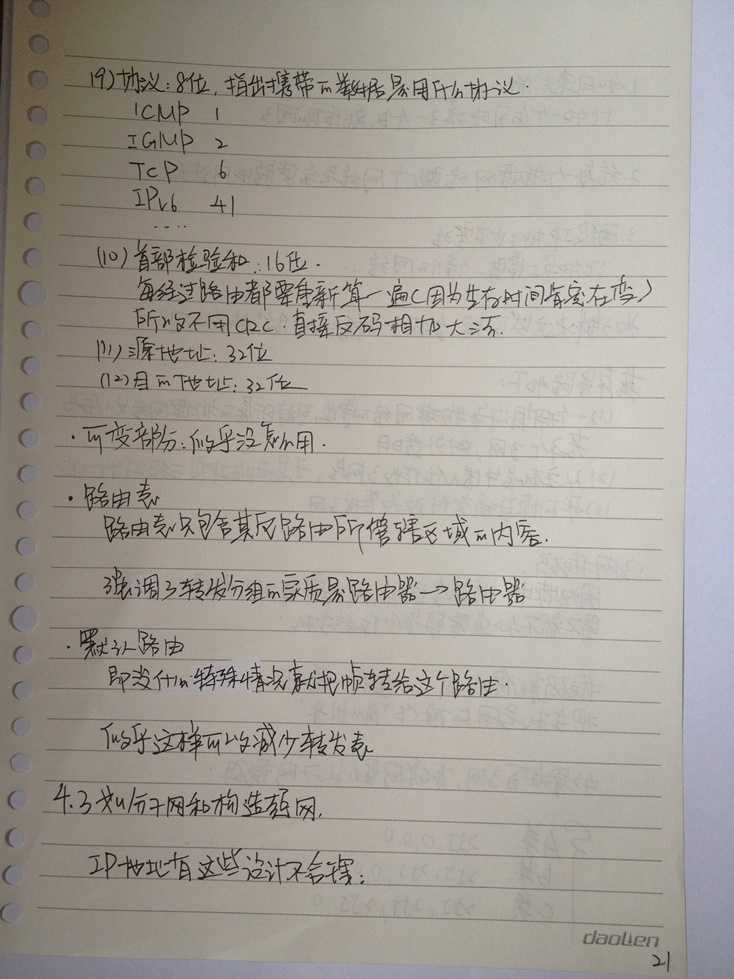 (9)协议:8位,指出携带的数据是用什么协议.
ICMP 1
IGMP 2
TCP 6
IPv6 41
....
(10)首部检验和:16位.
每经过路由都要重新算一遍(因为生存时间肯定在变)
所以不用CRC.直接反码相加大法.
(11)源地址:32位
(12)目的地址:32位
·可变部分:似乎没怎么用.
·路由表
路由表只包含其后路由所管辖区域的内容.
强调了转发分组的实质是路由器→路由器
·默认路由
即没什么特殊情况就把帧转给这个路由.
似乎这样可以减少转发表
4.3 划分子网和构造超网.
IP地址有这些设计不合理:
daolien
21